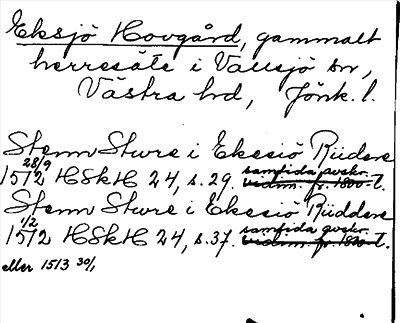 Eksjö Hovgård, gammalt
herresäte i Vallsjö sn,
Västra hd, Jönk. l.
Stenn Sture i Ekesiö Riidere
28/9 samfida avskr.
1512 HSkH 24, s. 29. vidim. fr. 1800-t.
Stenn Sture i Ekesiö Rüddere
1/2 samfida avskr.
1512 HSkH 24, s. 37. vidim. fr. 1800-t.
eller 1513 30/1